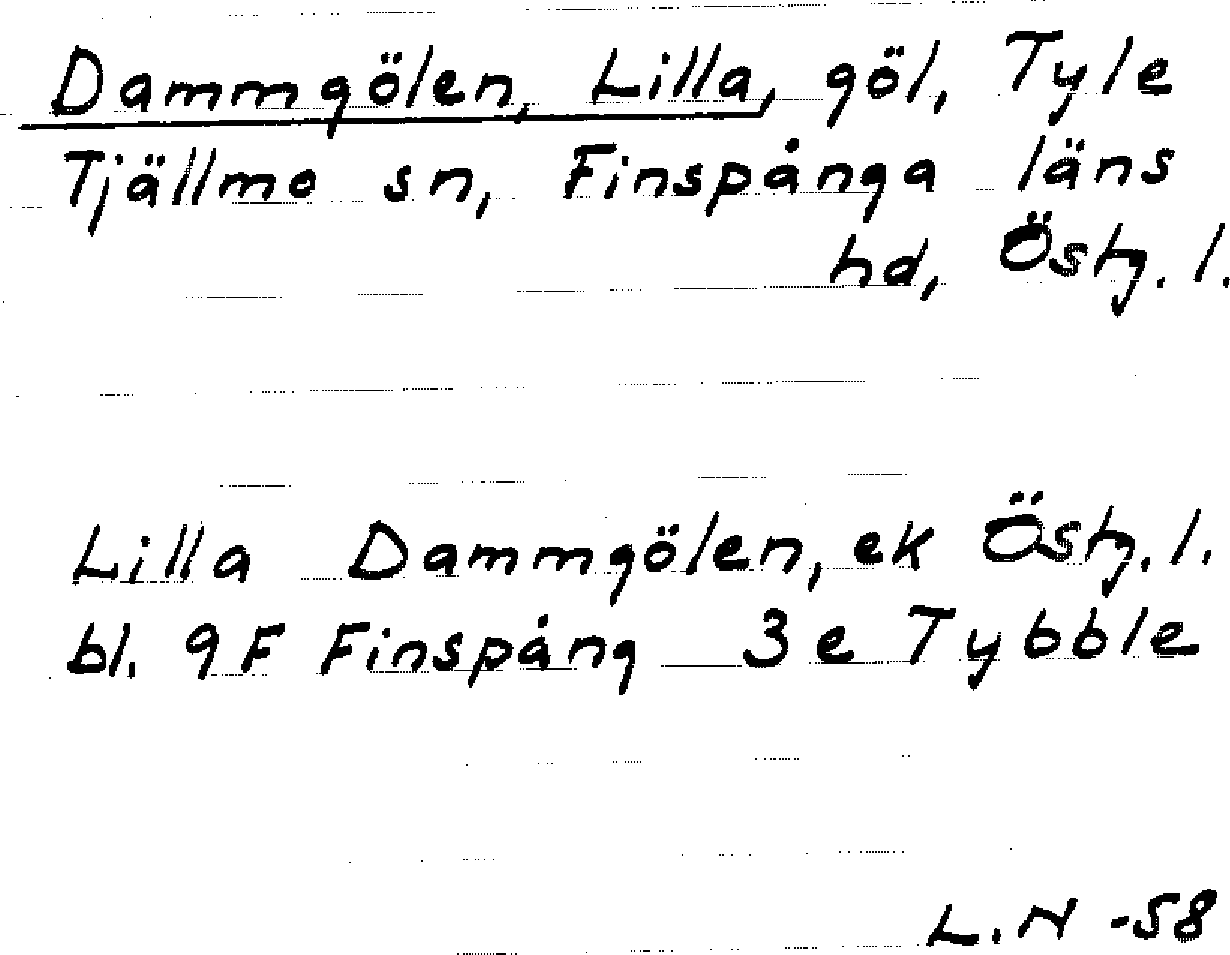 Dammgölen, Lilla, göl, Tyle
Tjällmo sn, Finspånga läns
hd, Östg. l.
Lilla Dammgölen, ek Östg. l.
bl. 9F Finspång 3e Tybble
L.N -58